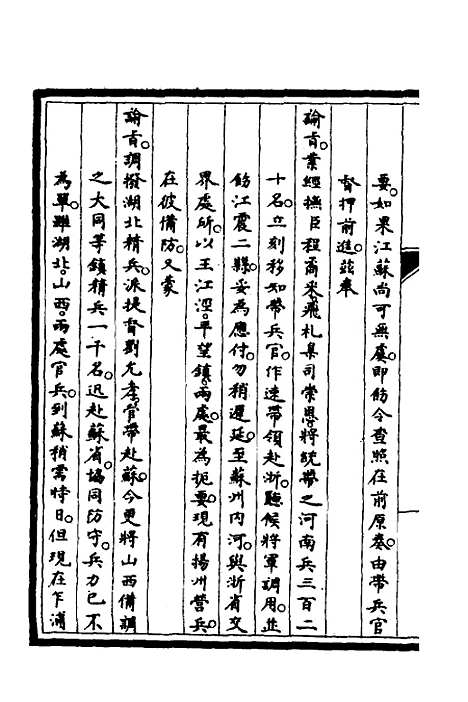 要。如果江蘇尚可無虞。即飭令查照在前原奏。由帶兵官
督押前進。茲奉
諭旨。業經撫臣程矞采。飛札臬司常恩。將統帶之河南兵三百二
十名。立刻移知帶兵官。作速帶領赴浙。聽候將軍調用。並
飭江震二縣。妥為應付。勿稍遲延。至蘇州內河。與浙省交
界處所。以王江涇。平望鎮。兩處。最為扼要。現有揚州營兵。
在彼備防。又蒙
諭旨。調撥湖北精兵。派提督劉允孝。管帶赴蘇。今更將山西備調
之大同等鎮精兵一千名。迅赴蘇省。協同防守。兵力已不
為單。雖湖北。山西。兩處官兵。到蘇稍需時日。但現在乍浦